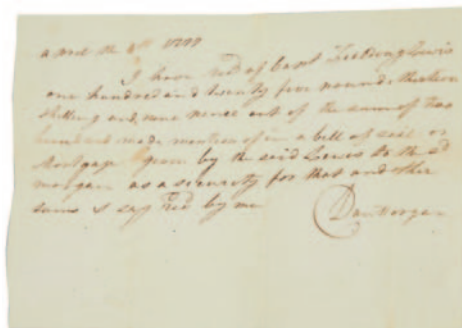 I have red of Capt Feilding Lewis
one hundred and twenty five pounds thirteen
shilling and nine pence out of the sum of two
hundred made mention of in a bill of sail or
Mortgage given by the said Lewis to the sd
morgan as a security for that and other
sums I say red by me
Dan Morgan